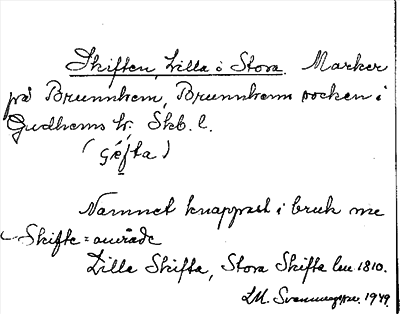 Skiften, Lilla o Stora. Marker
på Brunnhem, Brunnhems socken i
Gudhems hd; Skb. l.
( şe̜fta )
Namnet knappast i bruk me
Skifte = område
Lilla Skifta, Stora Skifta Lm 1810.
1949.